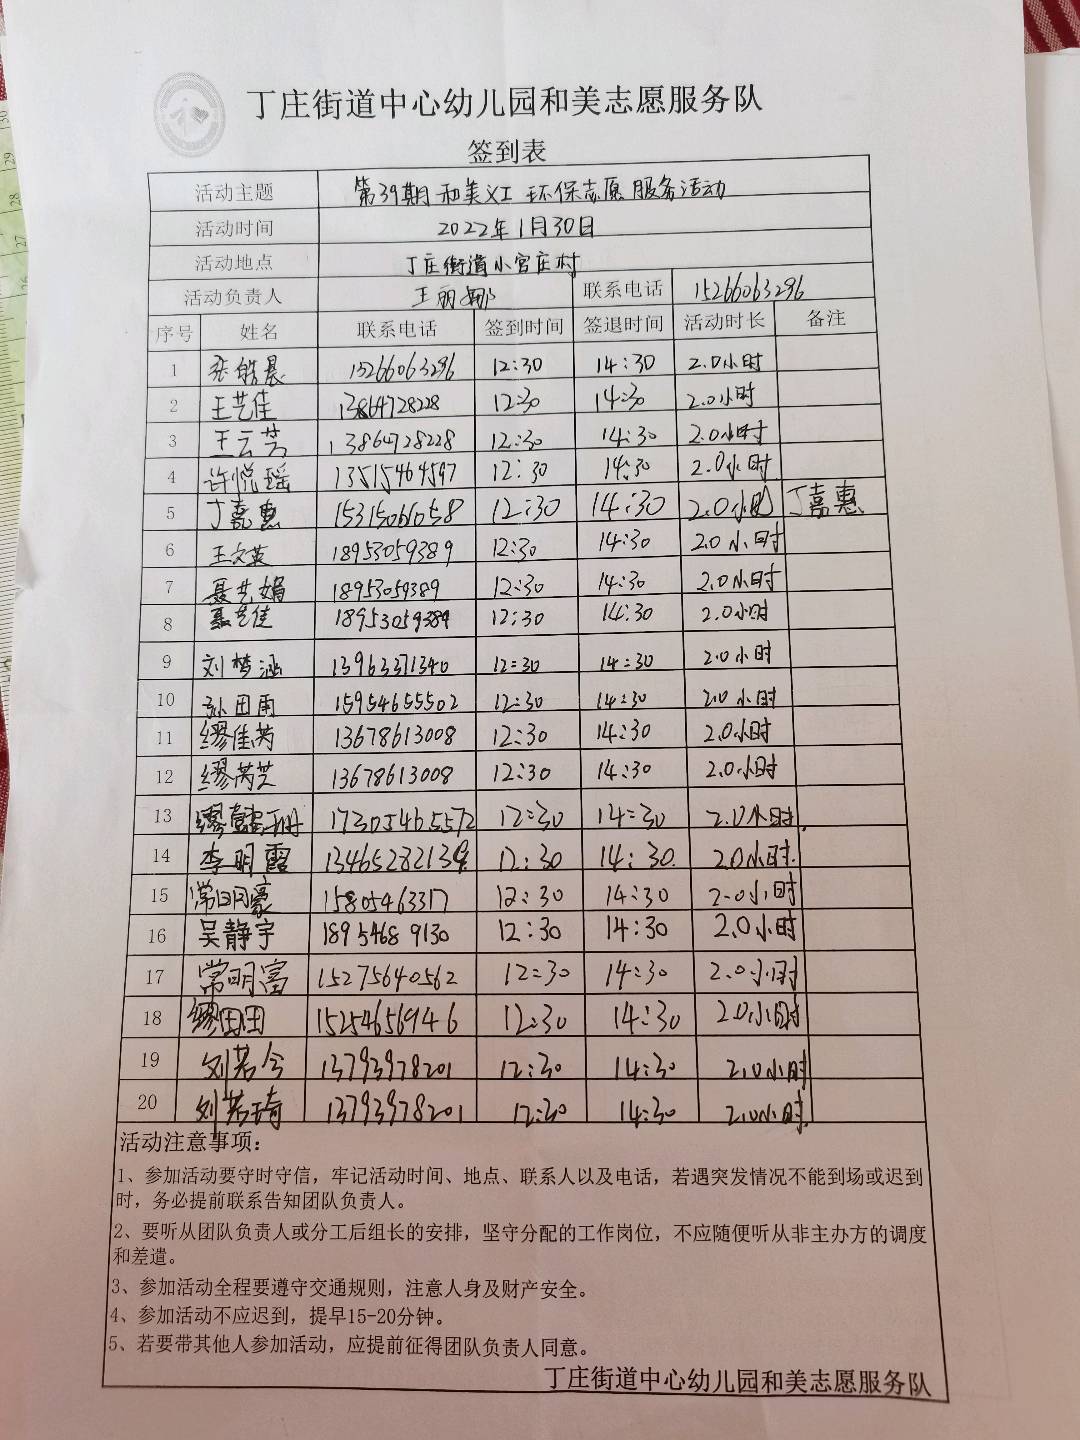 丁庄街道中心幼儿园和美志愿服务队
签到表
活动主题 第39期和美义工 环保志愿服务活动
活动时间 2022年1月30日
活动地点 丁庄街道小宫庄村
活动负责人 王丽娜 联系电话 15266063296
序号 姓名 联系电话 签到时间 签退时间 活动时长 备注
1 张皓晨 15266063296 12:30 14:30 2.0小时
2 王艺佳 13864728228 12:30 14:30 2.0小时
3 王云芳 13864728228 12:30 14:30 2.0小时
4 许悦瑶 13515464597 12:30 14:30 2.0小时
5 丁嘉惠 15315066058 12:30 14:30 2.0小时 丁嘉惠
6 王文英 18953059389 12:30 14:30 2.0小时
7 聂艺娟 18953059389 12:30 14:30 2.0小时
8 聂艺佳 18953059389 12:30 14:30 2.0小时
9 刘梦涵 13963371340 12:30 14:30 2.0小时
10 孙田雨 15954655502 12:30 14:30 2.0小时
11 缪佳芮 13678613008 12:30 14:30 2.0小时
12 缪芮芝 13678613008 12:30 14:30 2.0小时
13 缪 17305465572 12:30 14:30 2.0小时.
14 李明霞 13465282139 12:30 14:30. 2.0小时.
15 常明豪 15805463317 12:30 14:30 2.0小时
16 吴静宇 18954689130 12:30 14:30 2.0小时
17 常明富 15275640562 12:30 14:30 2.0小时
18 缪田田 15254656946 12:30 14:30 2.0小时
19 刘若今 13793978201 12:30 14:30 2.0小时
20 刘若琦 13793978201 12:30 14:30 2.0小时
活动注意事项：
1、参加活动要守时守信，牢记活动时间、地点、联系人以及电话，若遇突发情况不能到场或迟到
时，务必提前联系告知团队负责人。
2、要听从团队负责人或分工后组长的安排，坚守分配的工作岗位，不应随便听从非主办方的调度
和差遣。
3、参加活动全程要遵守交通规则，注意人身及财产安全。
4、参加活动不应迟到，提早15-20分钟。
5、若要带其他人参加活动，应提前征得团队负责人同意。
丁庄街道中心幼儿园和美志愿服务队